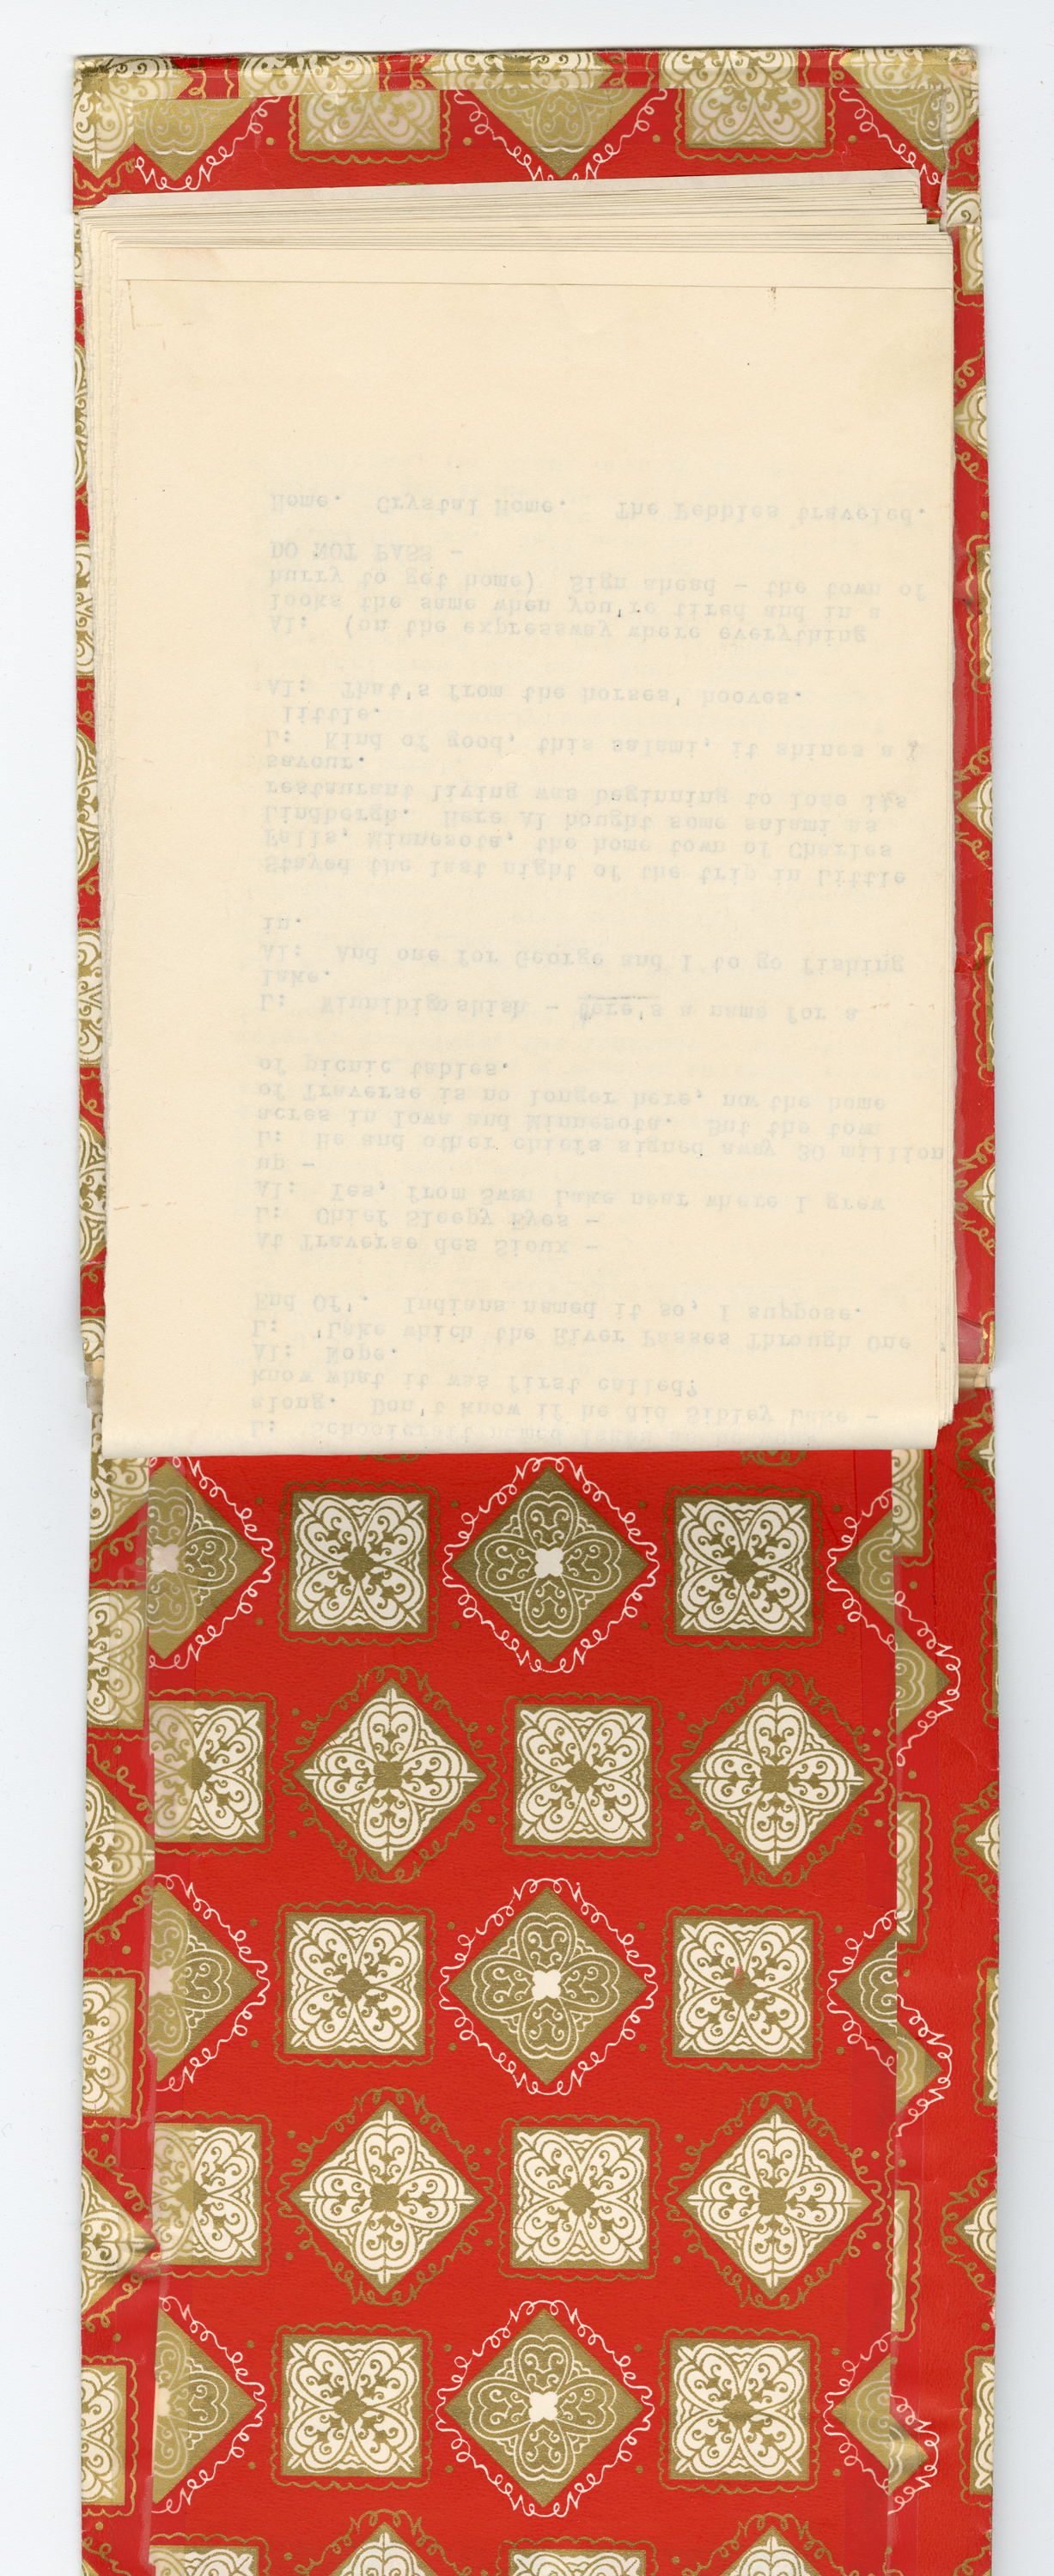 L: Schoolcraft named lakes as he went
along. Don't know if he did Sibley Lake -
know what it was first called?
Al: Nope.
L: 'Lake which the River Passes Through One
End Of'. Indians named it so, I suppose.
At Traverse des Sioux -
L: Chief Sleepy Eyes -
Al: Yes, from Swan Lake near where I grew
up -
L: He and other chiefs signed away 30 million
acres in Iowa and Minnesota. But the town
of Traverse is no longer here, now the home
of picnic tables.
L: Winnibigoshish - there's a name for a
lake.
Al: And one for George and I to go fishing
in.
Stayed the last night of the trip in Little
Falls, Minnesota, the home town of Charles
Lindbergh. Here Al bought some salami as
restaurant living was beginning to lose its
savour.
L: Kind of good, this salami, it shines a
little.
Al: That's from the horses' hooves.
Al: (on the expressway where everything
looks the same when you're tired and in a
hurry to get home) Sign ahead - the town of
DO NOT PASS -
Home. Crystal Home. The Pebbles traveled.